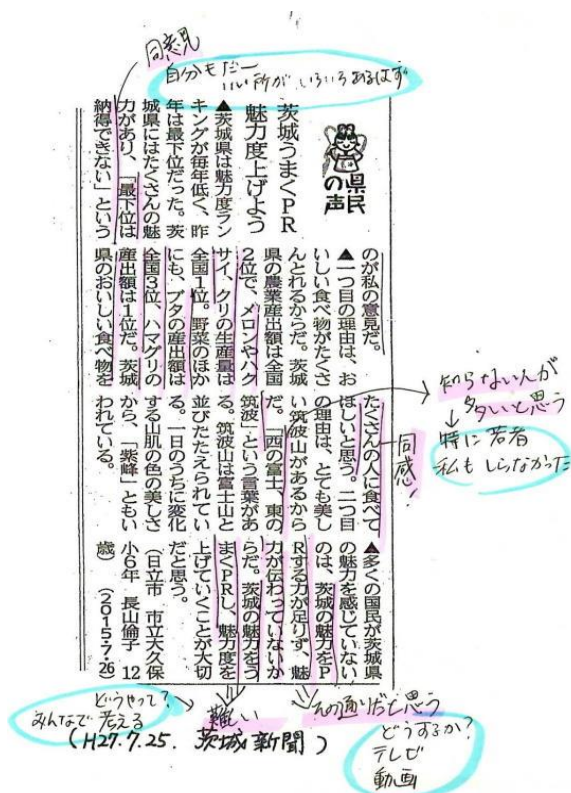 同意見
自分もだー
いい所が、いろいろあるはず
県民
の声
茨城うまくPR
魅力度上げよう
▲茨城県は魅力度ラン
キングが毎年低く、昨
年は最下位だった。茨
城県にはたくさんの魅
力があり、「最下位は
納得できない」という
のが私の意見だ。
▲一つ目の理由は、お
いしい食べ物がたくさ
んとれるからだ。茨城
県の農業産出額は全国
2位で、メロンやハク
サイ、クリの生産量は
全国1位。野菜のほか
にも、ブタの産出額は
全国3位、ハマグリの
産出額は1位だ。茨城
県のおいしい食べ物を
たくさんの人に食べて
ほしいと思う。二つ目
の理由は、とても美し
い筑波山があるから
だ。「西の富士、東の
筑波」という言葉があ
る。筑波山は富士山と
並びたたえられてい
る。一日のうちに変化
する山肌の色の美しさ
から、「紫峰」ともい
われている。
▲多くの国民が茨城県
の魅力を感じていない
のは、茨城の魅力をP
Rする力が足りず、魅
力が伝わっていないか
らだ。茨城の魅力をう
まくPRし、魅力度を
上げていくことが大切
だと思う。
(日立市 市立大久保
小6年 長山倫子 12
歳) (2015・7・26)
同感!
知らない人が
多いと思う
特に若者
私もしらなかった
どうやって?
みんなで考える
難しい
その通りだと思う
どうするか?
テレビ
動画
(H27.7.25. 茨城新聞)